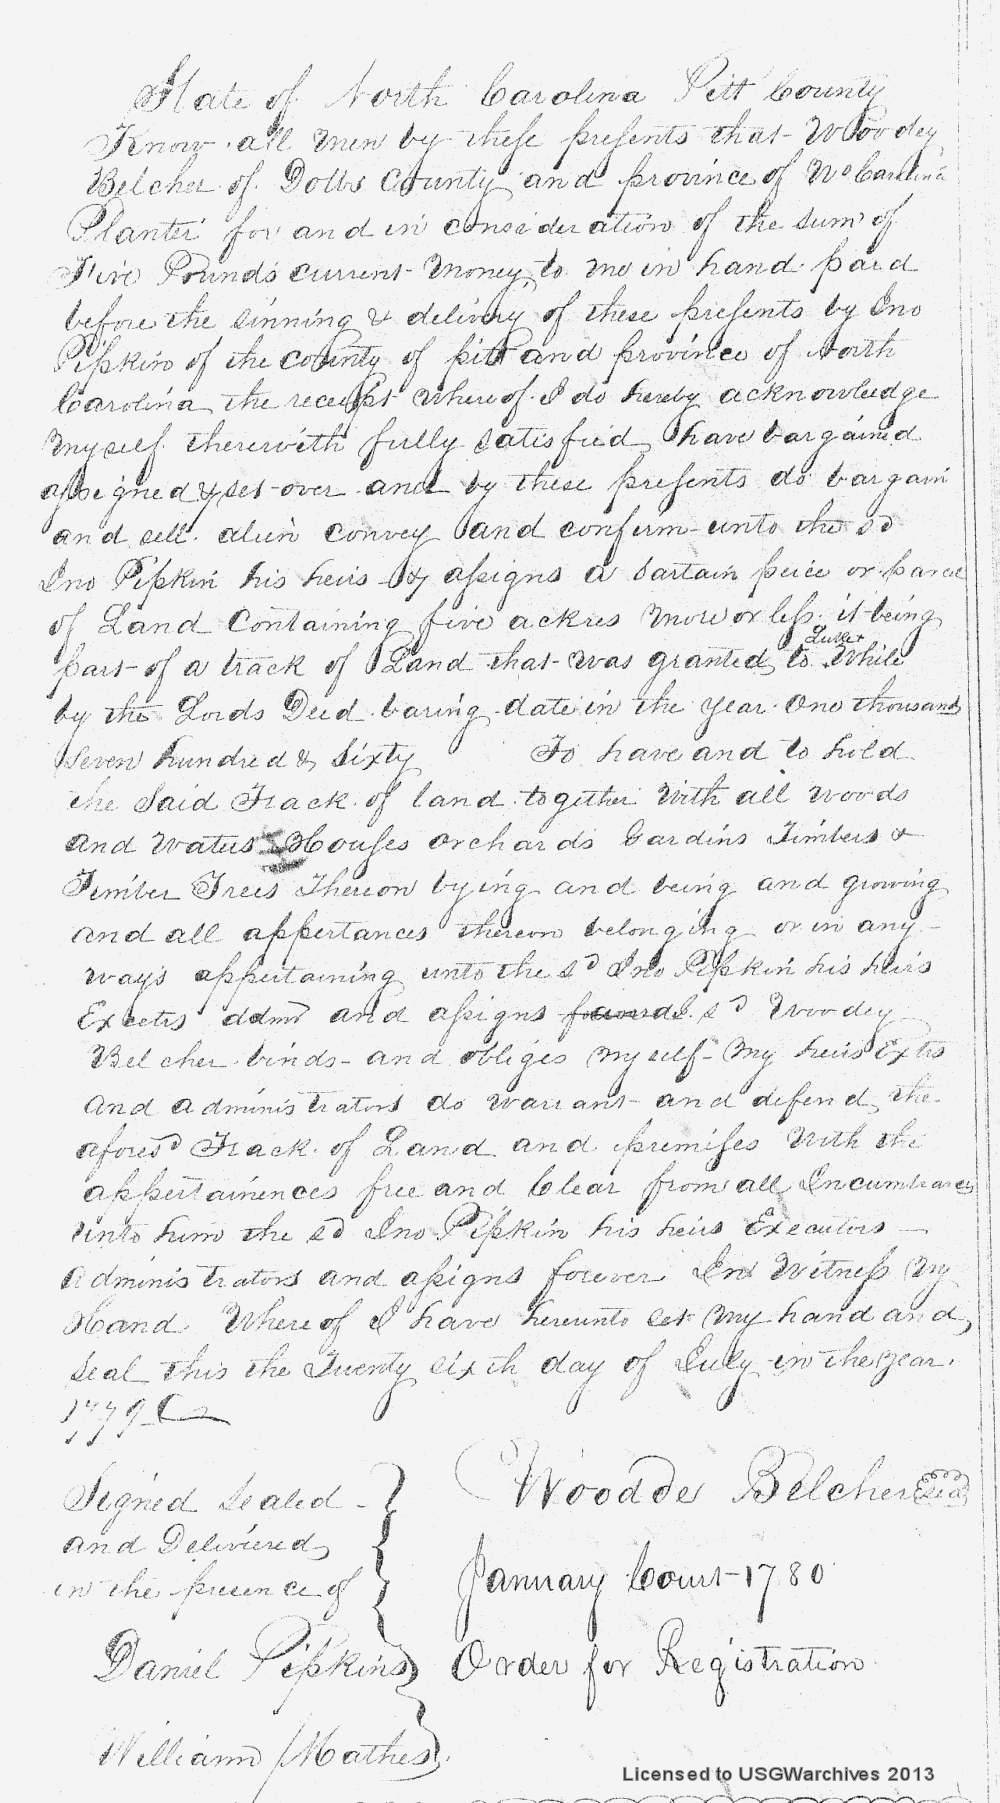 State of North Carolina Pitt County
Know all men by these presents that Woodey
Belcher of Dobbs County and province of No Carolina
Planter for and in consideration of the sum of
Five Pounds current money to me in hand paid
before the sinning & delivery of these presents by Jno
Pipkin of the county of pitt and province of North
Carolina the receipt whereof I do hereby acknowledge
myself therewith fully satisfied have bargained
assigned & set over and by these presents do bargain
and sell alein convey and confirm unto the sd
Jno Pipkin his heirs & assigns a sartain peice or parcel
of Land Containing five ackres more or less it being
part of a track of Land that was granted to Luke While
by the Lords Deed baring date in the year One thousand
seven hundred & sixty To have and to hold
the said Track of land together with all woods
and waters Houses orchards Gardins Timbers &
Timber Trees Thereon bying and being and growing
and all appertances thereon belonging or in any
ways appertaining unto the sd Jno Pipkin his heirs
Exectrs admr and assigns sd Woodey
Belcher binds and obliges myself my heirs Extrs
and administrators do warrant and defend the
aforesd Track of Land and premises With the
appertainences free and Clear from all Incumbrances
unto him the sd Jno Pipkin his heirs Executors
administrators and assigns forever In Witness My
Hand Whereof I have hereunto set my hand and
seal this the Twenty sixth day of July in the year
1779
Signed sealed
and Delivered
in the presence of
Woodde Belcher Seal
January Court 1780
Daniel Pipkins
Order for Registration
William Mathes
Licensed to USGWarchives 2013